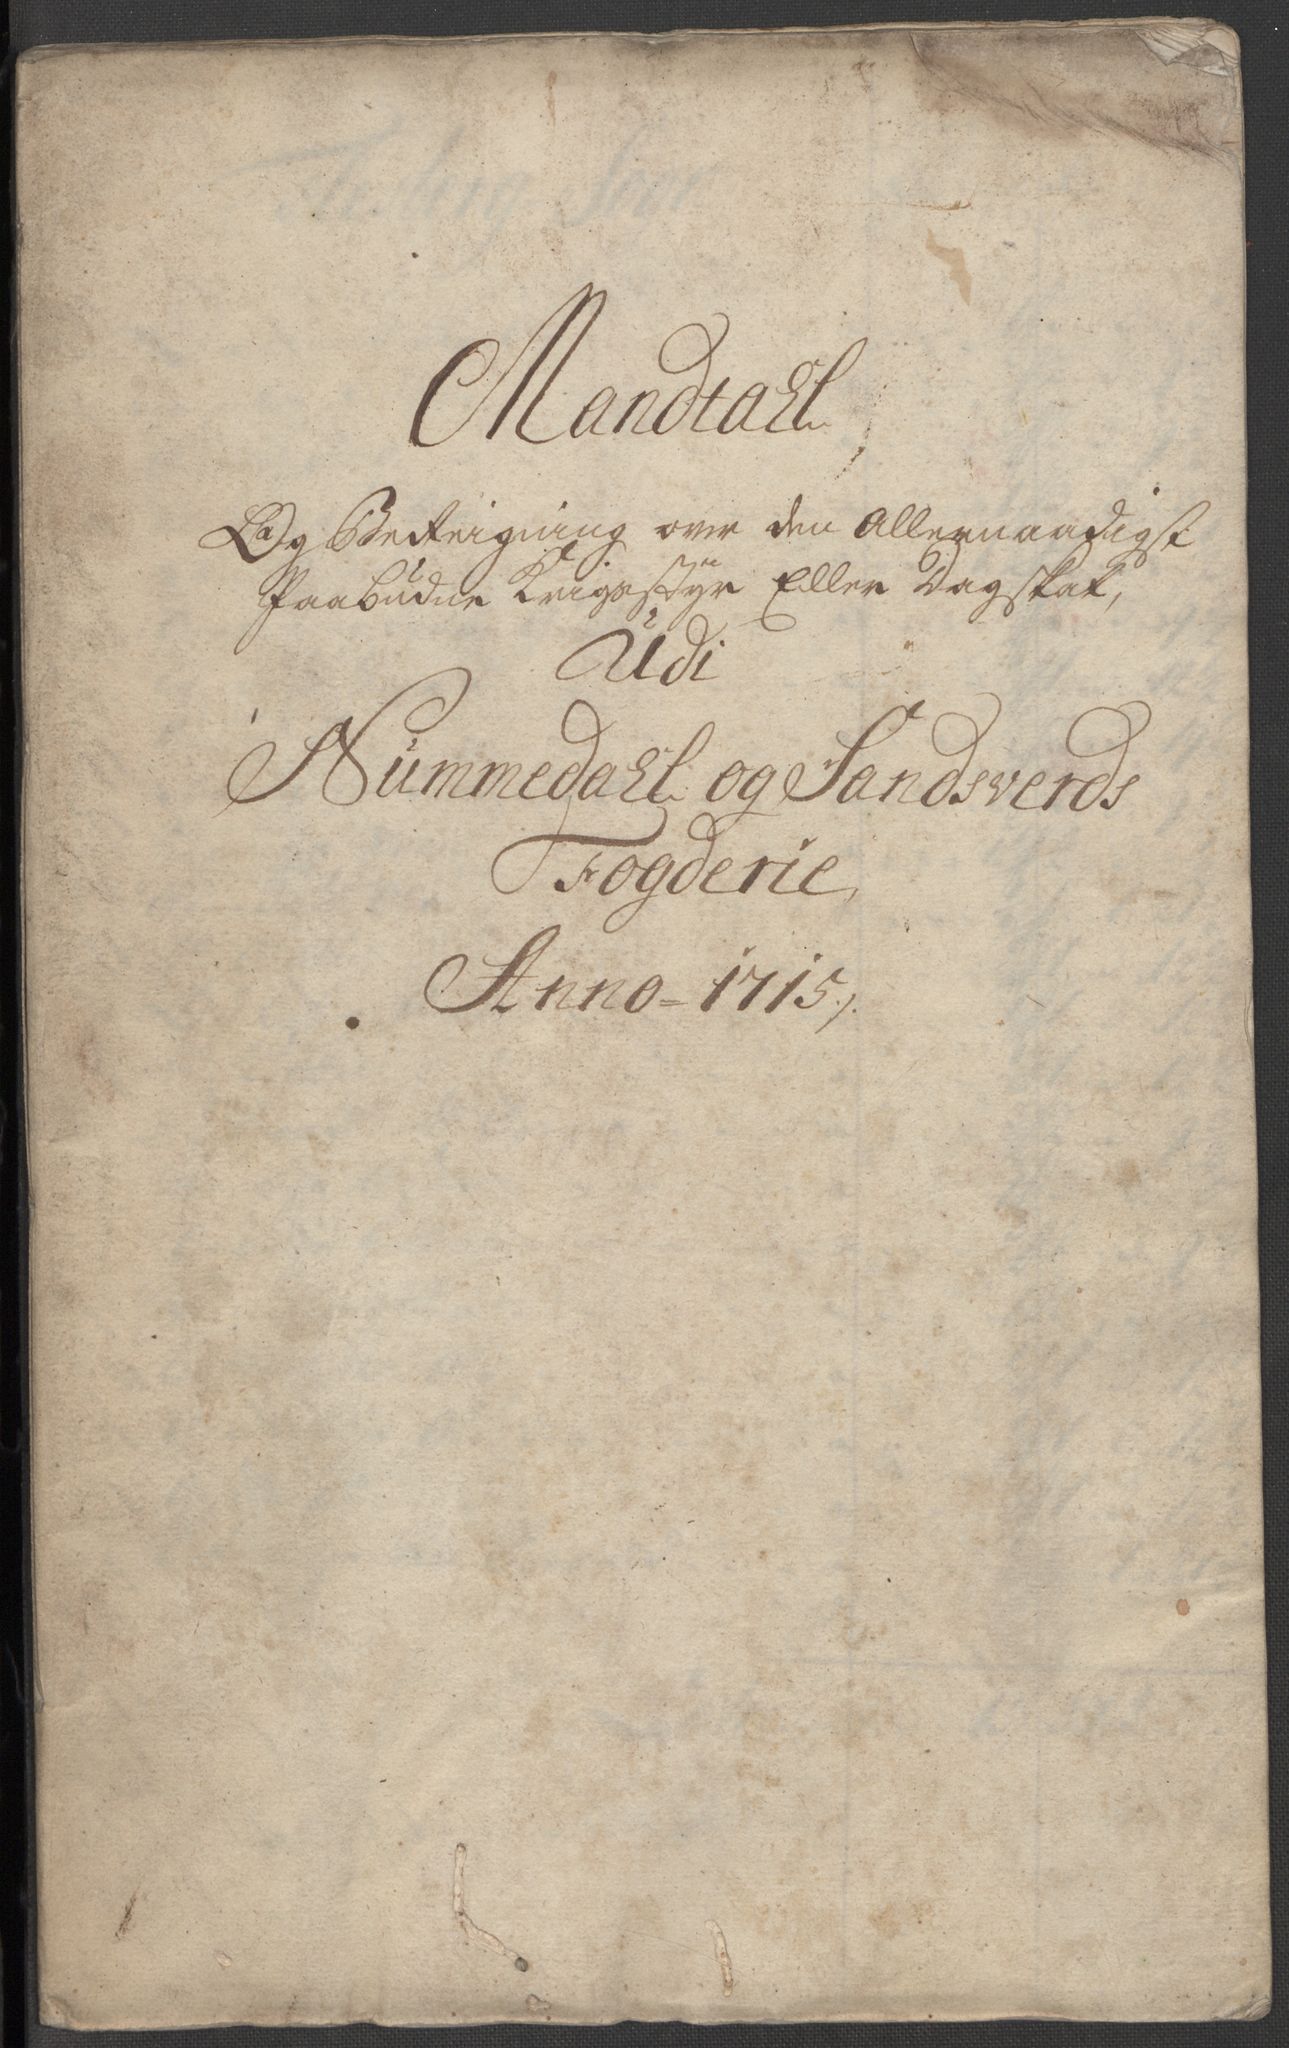 Mandtahl
Og Beteigning over den Allernaadigst
Paabudne Krigsstÿr Eller Dagskat,
Udi
Nummedahl og Sandsverds
Fogderie,
Anno - 1715 ./.